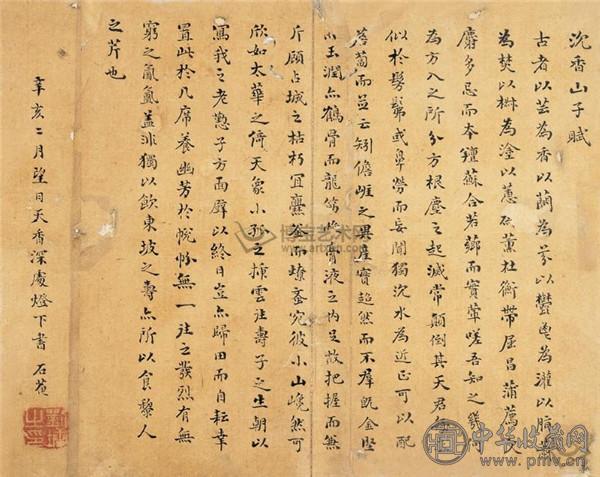 沉香山子賦
古者以芸為香以蘭為芬以鬱鬯為灌以脂蕭
為焚以椒為塗以蕙為薰杜衡帶屈昌蒲薦文
麝多忌而本羶蘇合若薌而實葷嗟吾知之幾
為六入之所分方根塵之起滅常顛倒其天君每
似於髣髴或鼻勞而妄聞獨沉水為近正可以配
薝蔔而並云矧儋崖之異產實超然而不群既金堅
而玉潤亦鶴骨而龍筋惟膏液之內足故把握而兼
斤顧占城之枯朽宜爨釜而燎蚊宛彼小山巉然可
欣如太華之倚天象小孤之插雲往壽子之生朝以
寫我之老懃子方面壁以終日豈亦歸田而自耘幸
置此於几席養幽芳於帨帉無一往之發烈有無
窮之氤氳蓋非獨以飲東坡之壽亦所以食黎人
之芹也
辛亥二月望日天香深處燈下書 石菴
博宝艺术网
www.artxun.com
中华收藏网
www.pmv.cn